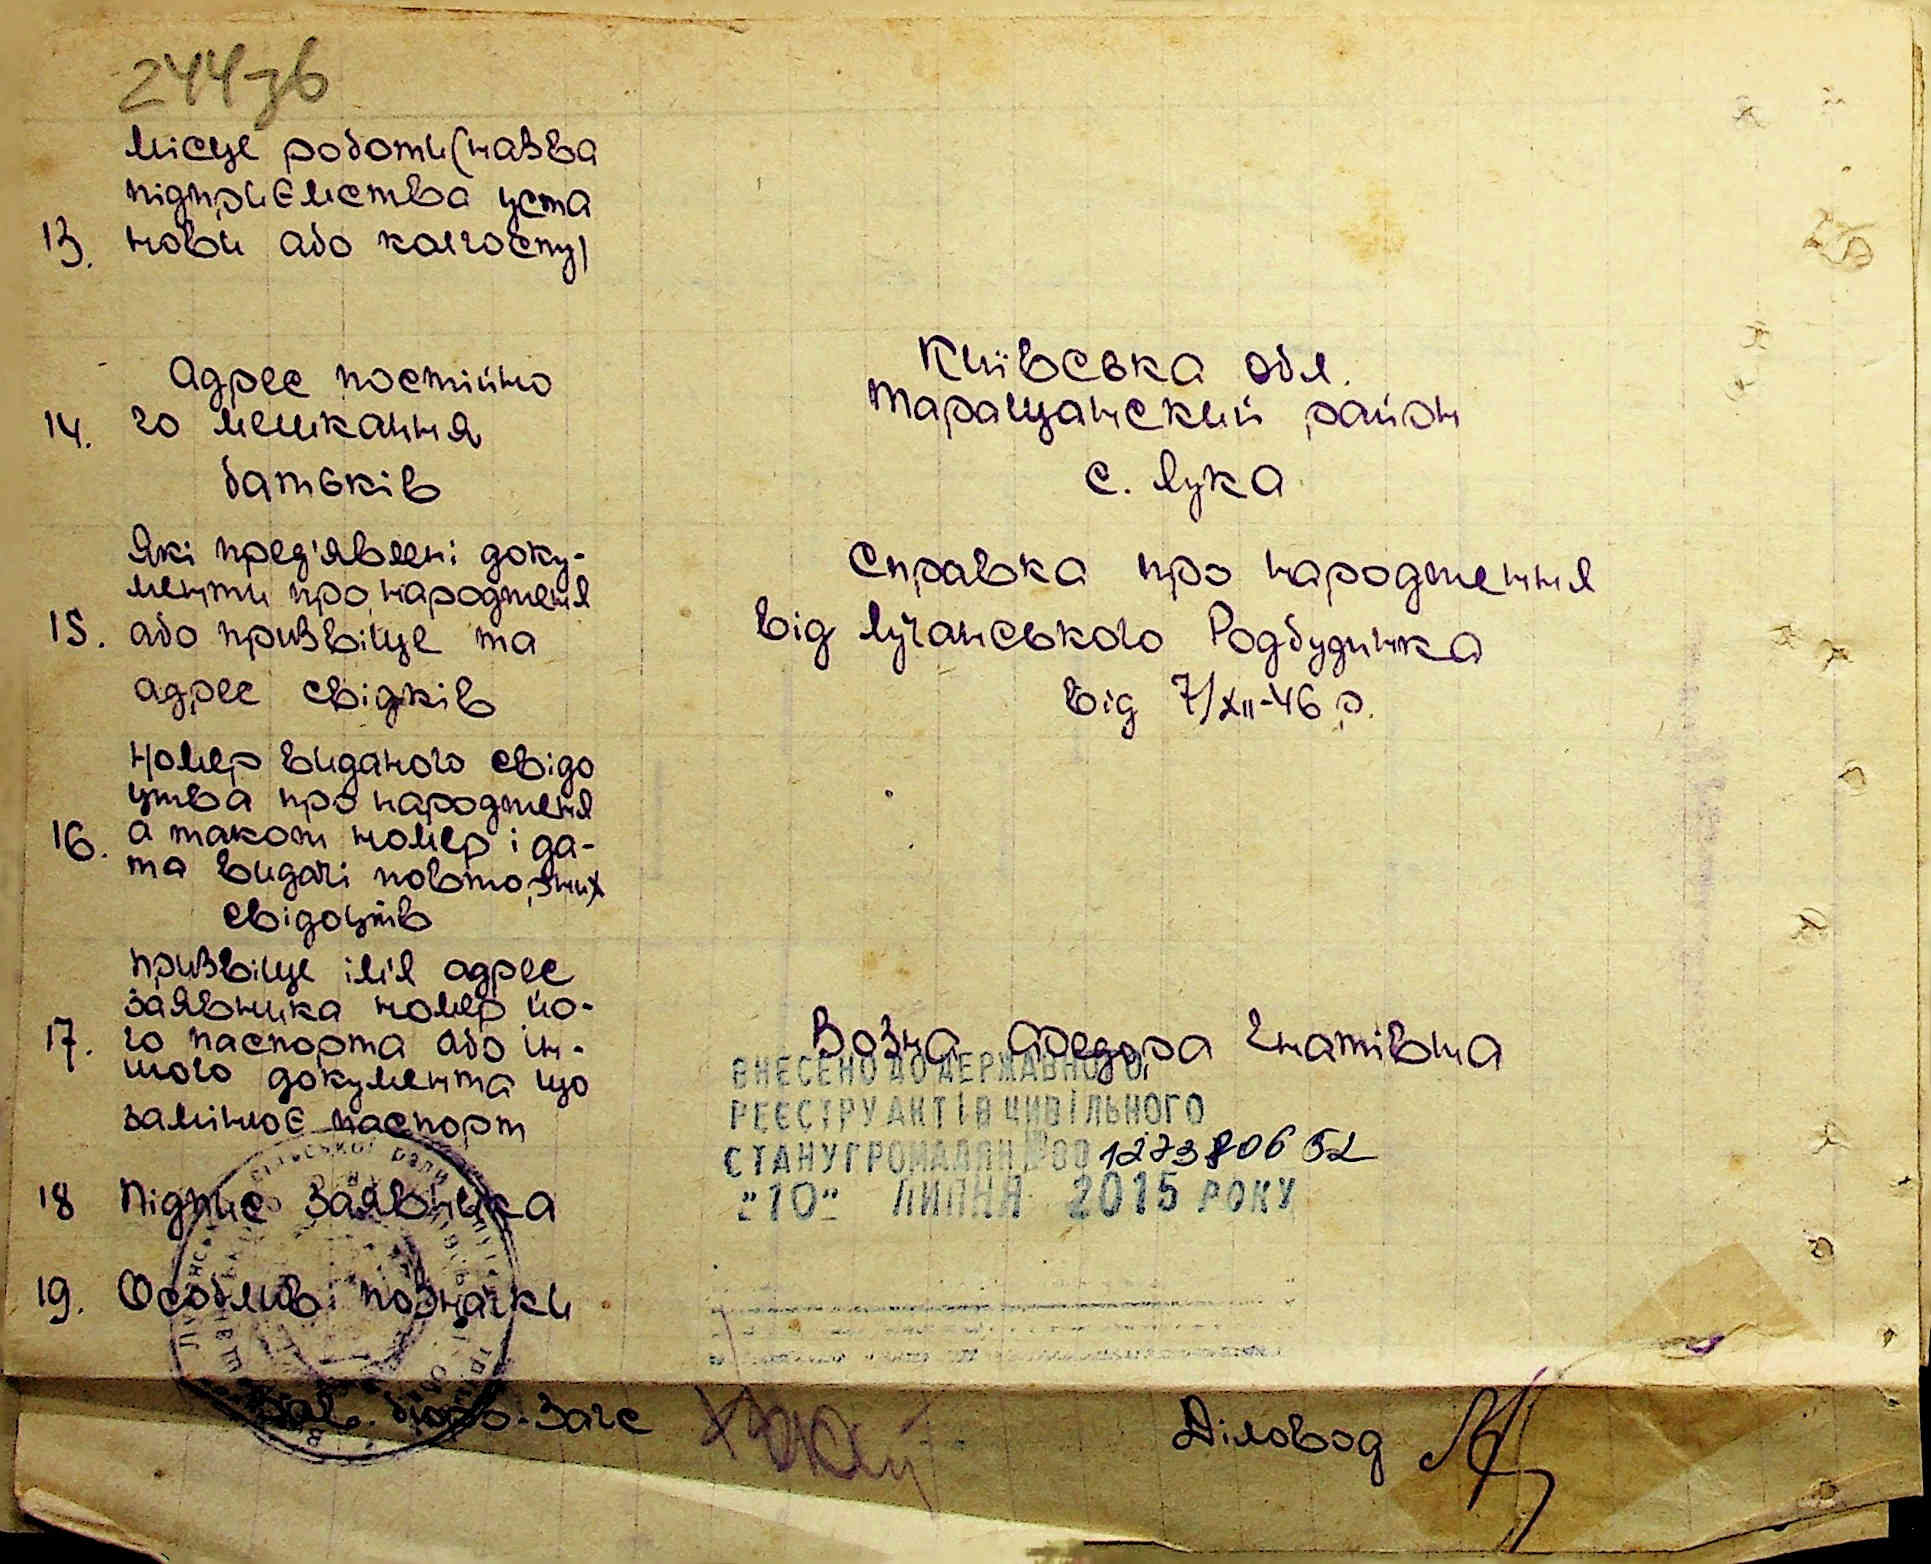 244зв
місце роботи (назва
підприємства уста
13. нови або колгоспу)
Адрес постійно
14. го мешкання
батьків
Київська обл.
Таращанский район
с. Лука
Які пред'явлені доку-
менти про народженя
15. або призвіще та
адрес свідків
Справка про народження
від Лучанського Родбудинка
від 7/XII-46 р.
Номер виданого свідо
цтва про народженя
16. а також номер і да-
та видачі повторних
свідоцтв
призвіще ім'я адрес
заявника номер йо-
17. го паспорта або ін-
шого документа що
замінює паспорт
Возна Федора Гнатівна
ВНЕСЕНО ДО ДЕРЖАВНОГО
РЕЄСТРУ АКТІВ ЦИВІЛЬНОГО
СТАНУ ГРОМАДЯН № 00 127380652
"10" ЛИПНЯ 2015 РОКУ
18 Підпис заявника
19. Особливі позначки
Зав. бюро-Загс
Діловод